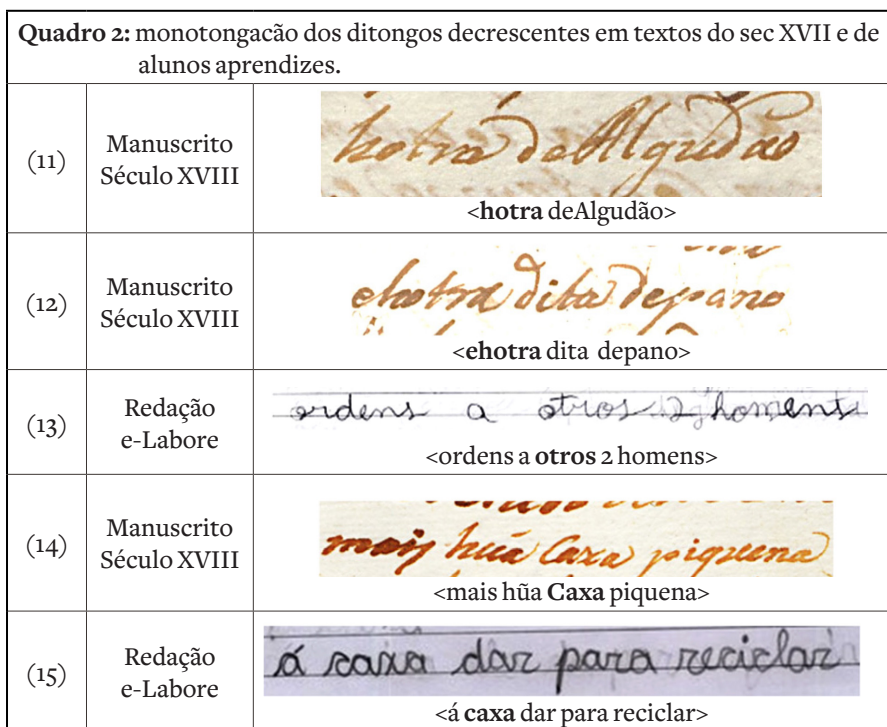 Quadro 2: monotongacão dos ditongos decrescentes em textos do sec XVII e de
alunos aprendizes.
(11)
Manuscrito
Século XVIII
hotra deAlgudão
<hotra deAlgudão>
(12)
Manuscrito
Século XVIII
ehotra dita depano
<ehotra dita depano>
(13)
Redação
e-Labore
ordens a otros 2 homens
<ordens a otros 2 homens>
(14)
Manuscrito
Século XVIII
mais hũa Caxa piquena
<mais hũa Caxa piquena>
(15)
Redação
e-Labore
á caxa dar para reciclar
<á caxa dar para reciclar>